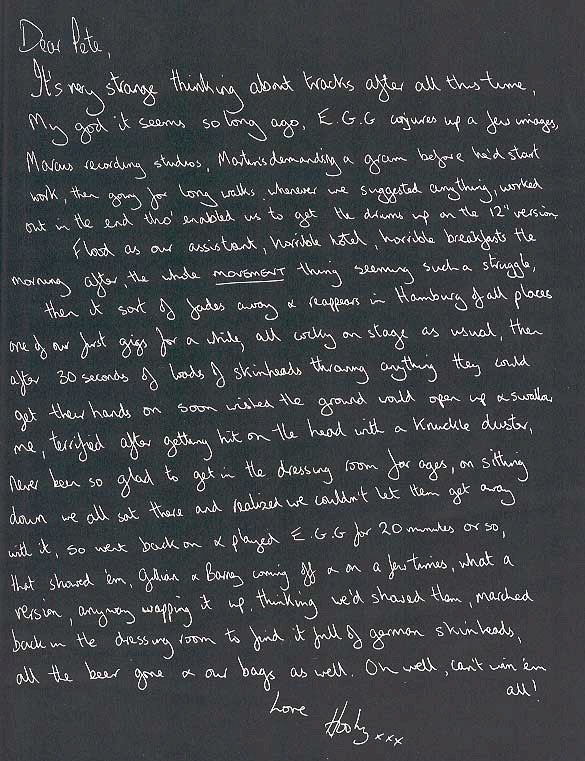 Dear Pete,
It's very strange thinking about tracks after all this time,
My god it seems so long ago, E.G.G conjures up a few images,
Marcus recording studios, Martin's demanding a gram before he'd start
work, then going for long walks whenever we suggested anything, worked
out in the end tho' enabled us to get the drums up on the 12" version
Flood as our assistant, horrible hotel, horrible breakfasts the
morning after, the whole MOVEMENT thing seeming such a struggle,
then it sort of fades away & reappears in Hamburg of all places
one of our first gigs for a while, all cocky on stage as usual, then
after 30 seconds of loads of skinheads throwing anything they could
get their hands on soon wished the ground would open up & swallow
me, terrified after getting hit on the head with a knuckle duster,
never been so glad to get in the dressing room for ages, on sitting
down we all sat there and realized we couldn't let them get away
with it, so went back on & played E.G.G for 20 minutes or so,
that showed 'em, Gillian & Barney coming off & on a few times, what a
version, anyway wrapping it up, thinking we'd showed them, marched
back in the dressing room to find it full of german skinheads,
all the beer gone & our bags as well. Oh well, can't win 'em
all!
Love
Hooky xxx